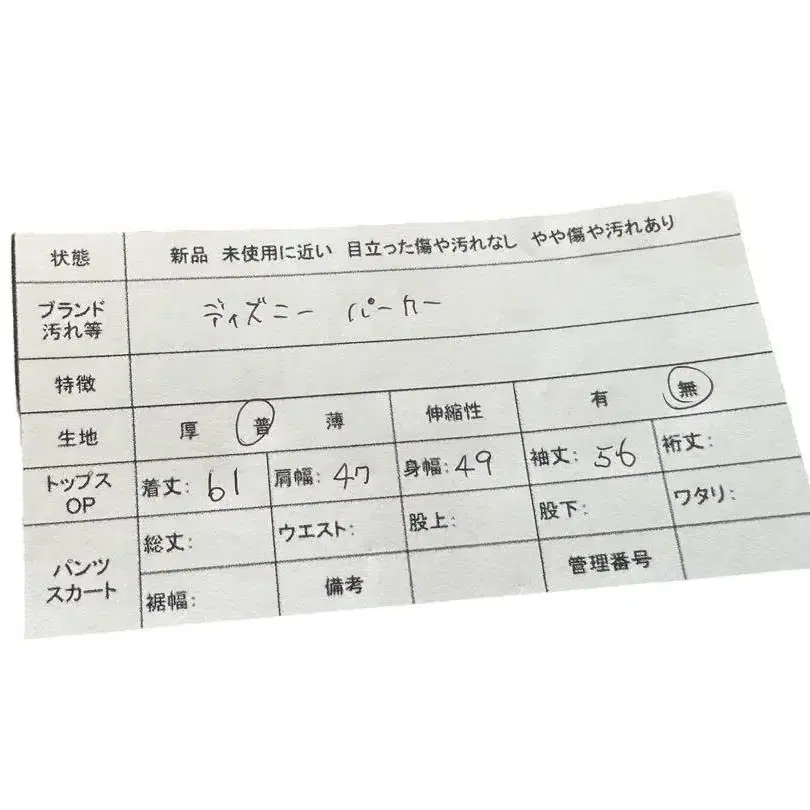 状態 新品 未使用に近い 目立った傷や汚れなし やや傷や汚れあり
ブランド
汚れ等 ディズニー パーカー
特徴
生地 厚 普 薄 伸縮性 有 無
トップス
OP 着丈: 61 肩幅: 47 身幅: 49 袖丈: 56 裄丈:
パンツ
スカート 総丈: ウエスト: 股上: 股下: ワタリ:
裾幅: 備考 管理番号